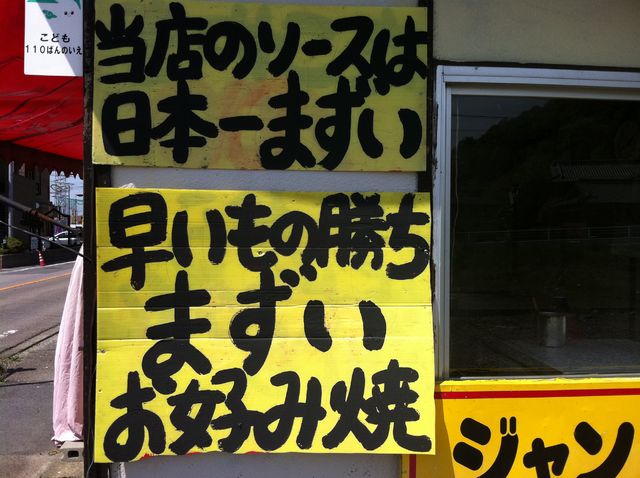 こども
110ばんのいえ
当店のソースは
日本一まずい
早いもの勝ち
まずい
お好み焼
ジャン